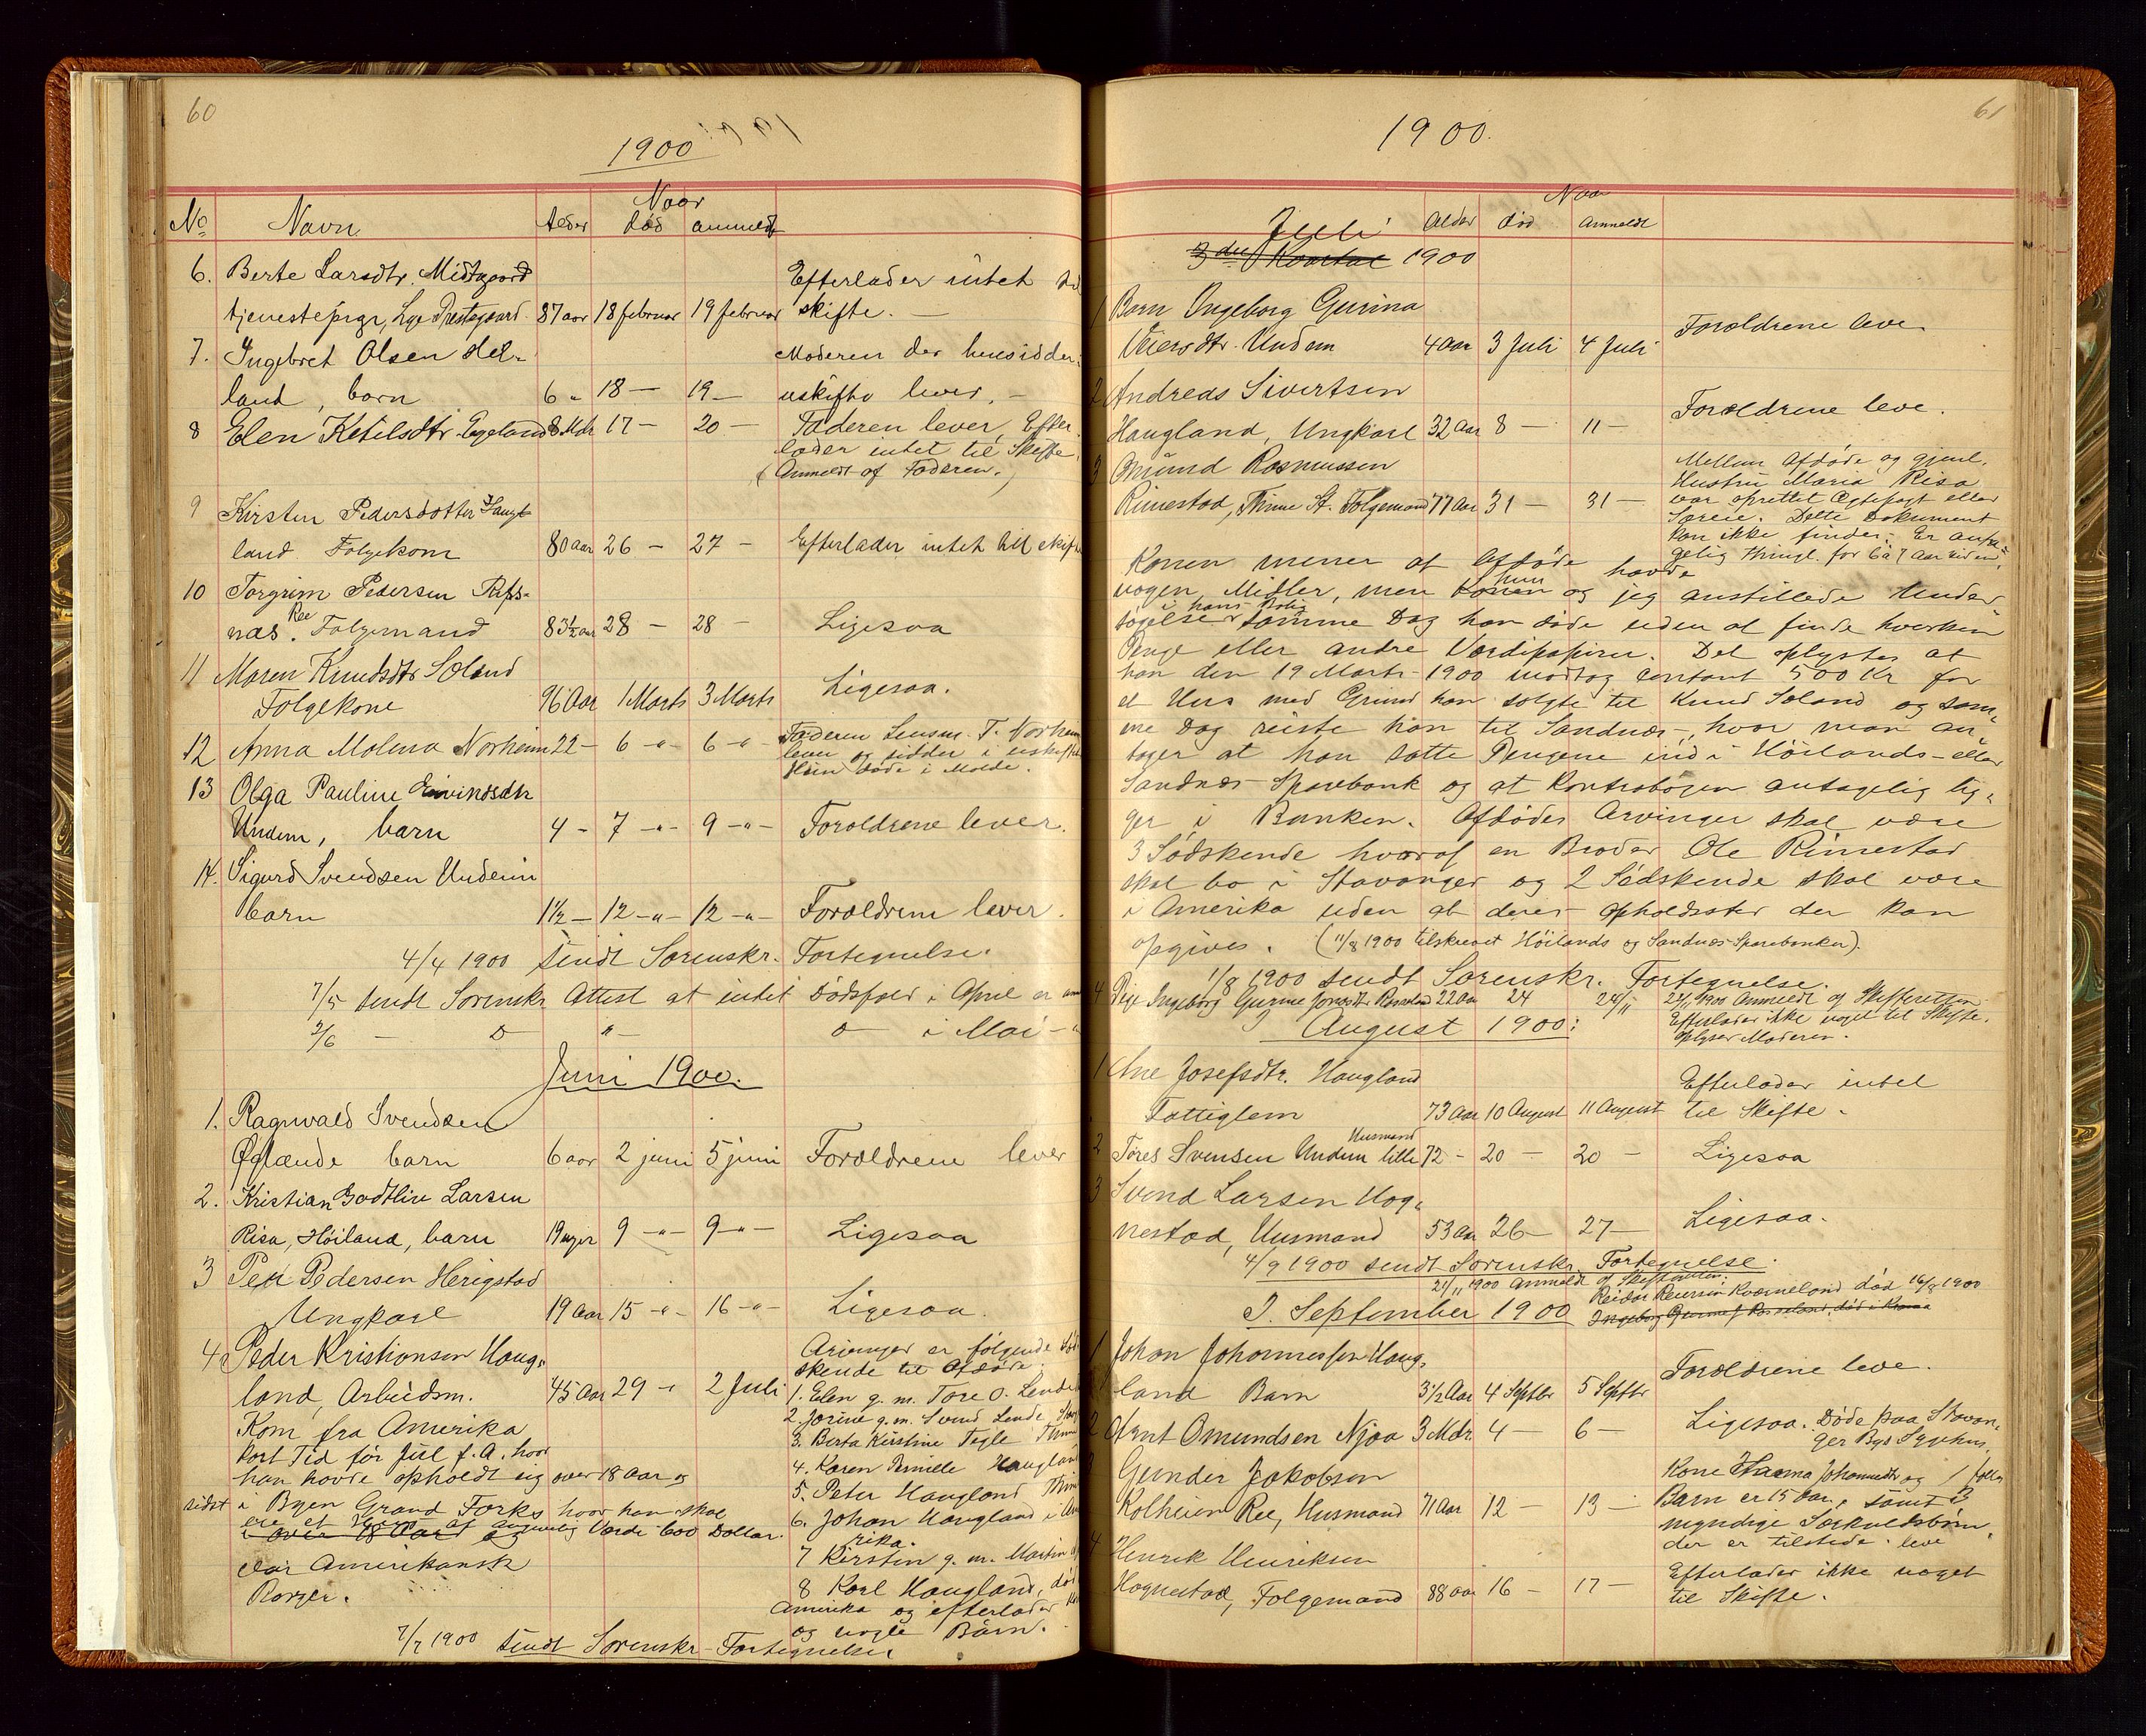 60
1900
No Navn Alder Naar død anmeldt
6. Berte Larsdtr. Midtgaard Efterlader intet
tjenestepige, Lye Prestegaard 87 aar 18 februar 19 februar skifte. —
7. Ingebret Olsen Hel- Moderen der hensidder
land, barn 6 " 18 — 19 — uskifte lever. —
8 Elen Ketilsdtr. Egeland 8 Mdr 17 — 20 — Faderen lever, Efter
lader intet til Skifte.
(Anmeldt af Faderen.)
9 Kirsten Pedersdotter Haug-
land Folgekone 80 aar 26 — 27 — Efterlader intet till skifte
10 Torgrim Pedersen Refs-
næs Ree. Folgemand 83½ aar 28 — 28 — Ligesaa
11 Maren Knudsdtr Soland
Folgekone 96 Aar 1 Marts 3 Marts Ligesaa.
12 Anna Malena Norheim 22 — 6 -"- 6 -"- Faderen Lensm. T. Norheim
lever og sidder i uskiftet
Hun døde i Molde.
13 Olga Pauline Eivindsdtr
Undem, barn 4 - 7 -"- 9 -"- Foroldrene lever.
14. Sigurd Svendsen Undeim
barn 1½ — 12 -"- 12 -"- Foroldrene lever.
4/4 1900 sendt Sorenskr. Fortegnelse.
7/5 sendt Sorenskr. Attest at intet Dødsfald i April er
2/6 — D " — o i Mai —
Juni 1900.
1. Ragnvald Svendsen
Øglænde barn 6 aar 2 juni 5 juni Foroldrene lever
2. Kristian Godtliv Larsen
Risa, Høiland, barn 19 uger 9 -"- 9 -"- Ligesaa
3 Peder Pedersen Herigstad
Ungkarl 19 Aar 15 -"- 16 -"- Ligesaa.
4. Peder Kristiansen Haug- Arvinger er følgende Sød
skende til Afdøde:
land, Arbeidsm. 45 Aar 29 -" 2 Juli 1. Elen g. m. Tore O. Lende
Kom fra Amerika 2. Jorine g. m. Svend Lende
kort Tid før Jul f. A. hvor 3. Berta Kirstine Tegle Thime
han havde opholdt sig over 18 Aar og 4. Karen Pernille Haugland
sidst i Byen Grand Forks hvor han skal 5. Peter Haugland Thime
eie et Huus af antagelig Værdi 600 Dollar. 6. Johan Haugland i Ame
rika.
Var Amerikansk 7 Kirstin g. m. Martin
Borger. 8 Karl Haugland, død
Amerika og efterlader
og nogle Børn.
7/7 1900 sendt Sorenskr. Fortegnelse
61
1900.
Juli Alder Naar død Anmeldt
3die Kvartal 1900
1 Barn Ingeborg Gurina
Veiersdtr. Undem 4 aar 3 Juli 4 Juli Foroldrene leve.
2 Andreas Sivertsen
Haugland, Ungkarl 32 Aar 8 — 11 — Foroldrene leve.
3 Omund Rasmussen Mellem Afdøde og gjenl.
Hustru Maria Risa
Rimestad, Thime St. Folgemand 77 Aar 31 — 31 — var oprettet Ægtepagt eller
Særeie. Dette Dokument
kan ikke findes. Er anta-
gelig thingl. for 6 à 7 Aar siden.
Konen mener at Afdøde havde
nogen Midler, men Konen hun og jeg anstillede Under-
søgelse i hans Bolig samme Dag han døde uden at finde hverken
Penge eller andre Værdipapirer. Det oplystes at
han den 19 Marts 1900 modtog kontant 500 Kr for
et Hus med Grund han solgte til Knud Soland og sam-
me Dag reiste han til Sandnæs, hvor man an-
tager at han satte Pengene ind i Høilands- eller
Sandnæs Sparebank og at Kontrabogen antagelig lig-
ger i Banken. Afdødes Arvinger skal være
3 Sødskende hvoraf en Broder Ole Rimestad
skal bo i Stavanger og 2 Sødskende skal være
i Amerika uden at deres opholdssted der kan
opgives. (11/8 1900 tilskrevet Høilands og Sandnæs Sparebanker).
1/8 1900 sendt Sorenskr. Fortegnelse.
4 Pige Ingeborg Gurine Jonasdtr Rosseland 22 aar 24 24/11 22/11 1900 Anmeldt af Skifteretten
Efterlader ikke noget til Skifte.
oplyser Moderen.
August 1900:
1 Ane Josefsdtr. Haugland Efterlader intet
Fattiglem 73 Aar 10 August 11 August til Skifte.
2 Tøres Svensen Undem lille Husmand 72 — 20 — 20 — Ligesaa
3 Svend Larsen Hog-
nestad, Husmand 53 Aar 26 — 27 — Ligesaa.
4/9 1900 sendt Sorenskr. Fortegnelse.
21/11 1900 Anmeldt af Skifteretten:
Reidar Reiersen Kværneland død 16/8 1900
I. September 1900 Ingeborg Gurine J Rosseland, død i Krana
1 Johan Johannessen Haug-
land Barn 3½ Aar 4 Septbr 5 Septbr Foroldrene leve.
2 Arnt Omundsen Njaa 3 Mdr. 4 — 6 — Ligesaa. Døde paa Stavan-
ger Bys Sygehus.
3 Gunder Jakobsen Kone Thrina Johannesdtr og 1 fælles
Kolheim Ree, Husmand 71 Aar 12 — 13 — Barn er 15 Aar, samt 3
myndige Særkuldsbørn,
der er tilstede leve
4 Henrik Henriksen
Hognestad, Folgemand 88 aar 16 — 17 — Efterlader ikke noget
til Skifte.